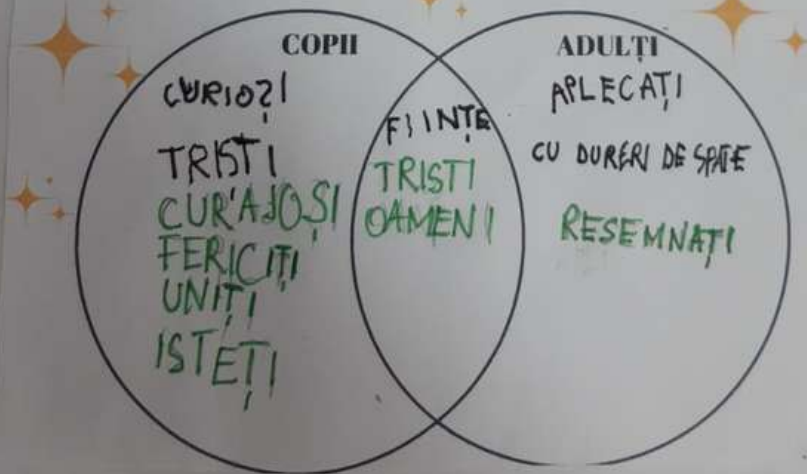 COPII
CURIOZI
TRISTI
CURAJOȘI
FERICIȚI
UNIȚI
ISTEȚI
FIINȚE
TRISTI
OAMENI
ADULȚI
APLECAȚI
CU DURERI DE SPATE
RESEMNAȚI